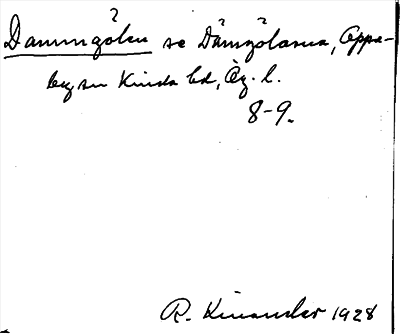 Dammgölen se Dämgölarna, Oppa-
by sn Kinda hd, Ög. l.
8-9.
R. Kinander 1928